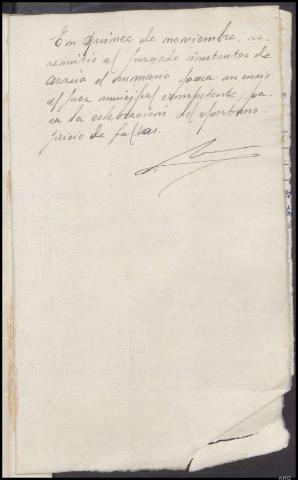 En quince de noviembre, se
remitió al juzgado instructor de
el sumario para su envío
al juez municipal competente, pa-
ra la celebración del oportuno
juicio de faltas.